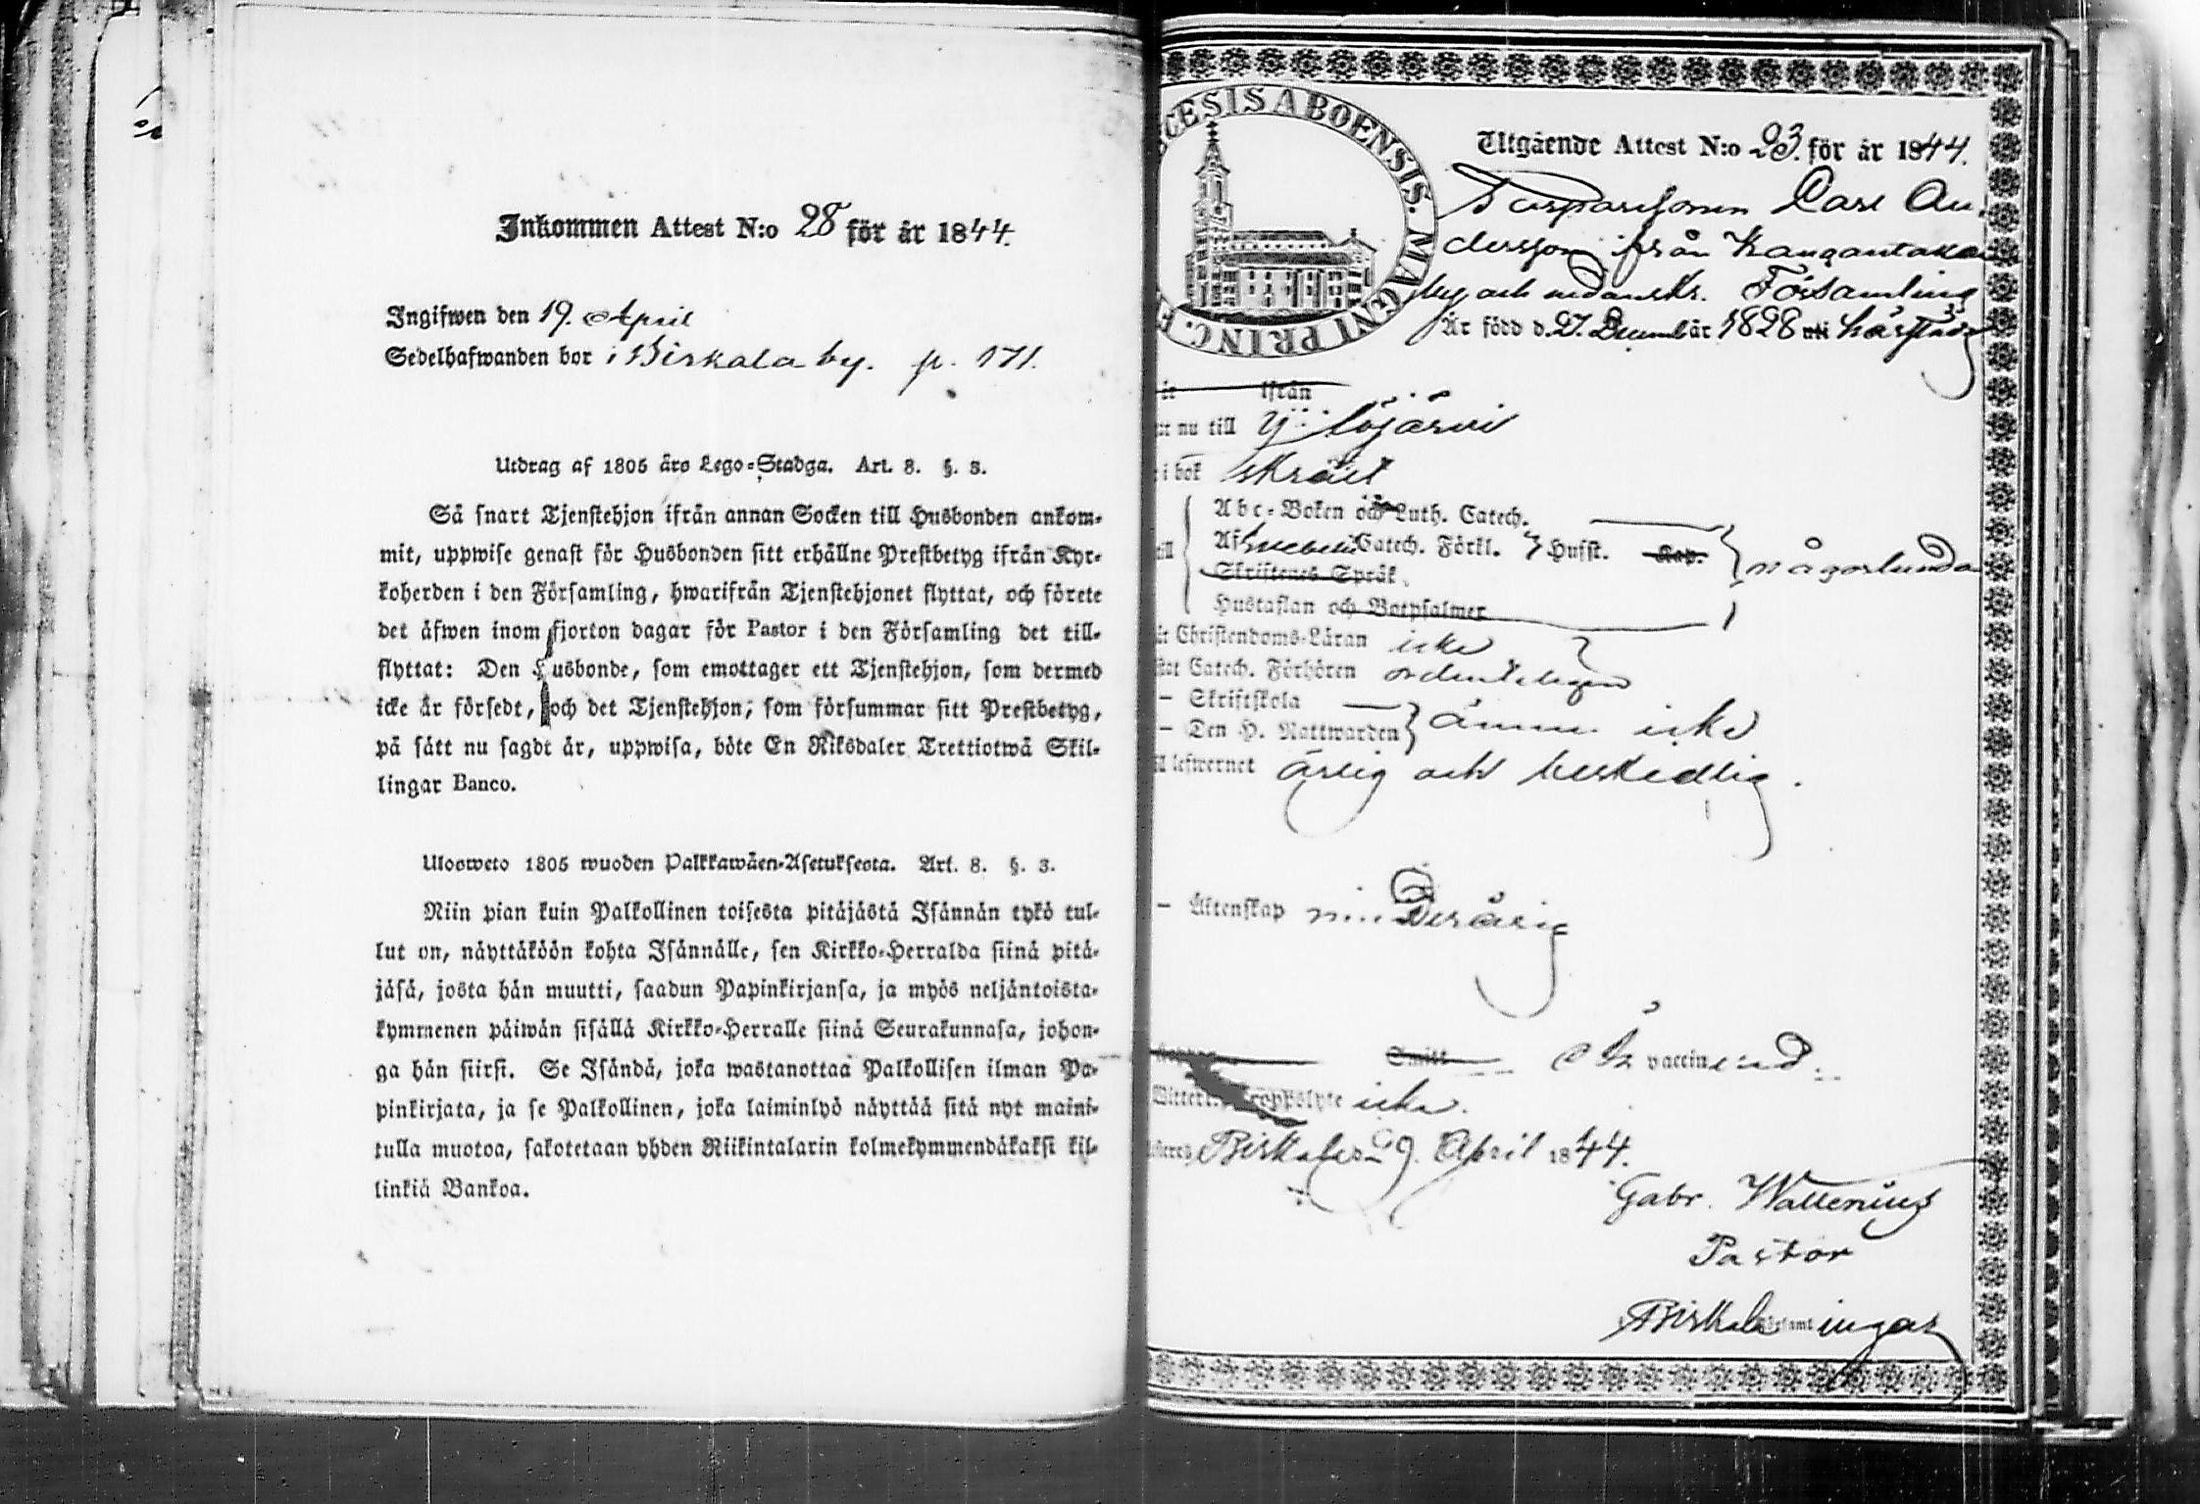 Inkommen Attest N:o 28 för år 1844.
Ingifwen den 19. April
Sedelhafwanden bor i Birkala by. p. 171.
Utdrag af 1805 års Lego-Stadga. Art. 8. §. 3.
Så snart Tjenstehjon ifrån annan Socken till Husbonden ankom-
mit, uppwise genast för Husbonden sitt erhållne Prestbetyg ifrån Kyr-
koherden i den Församling, hwarifrån Tjenstehjonet flyttat, och förete
det äfwen inom fjorton dagar för Pastor i den Församling det till-
flyttat: Den Husbonde, som emottager ett Tjenstehjon, som dermed
icke är försedt, och det Tjenstehjon, som försummar sitt Prestbetyg,
på sätt nu sagdt är, uppwisa, böte En Riksdaler Trettiotwå Skil-
lingar Banco.
Ulosweto 1805 wuoden Palkkawäen-Asetuksesta. Art. 8. §. 3.
Niin pian kuin Palkollinen toisesta pitäjästä Isännän tykö tul-
lut on, näyttäköön kohta Isännälle, sen Kirkko-Herralda siinä pitä-
jäsä, josta hän muutti, saadun Papinkirjansa, ja myös neljäntoista-
kymmenen päiwän sisällä Kirkko-Herralle siinä Seurakunnasa, johon-
ga hän siirsi. Se Isändä, joka wastanottaa Palkollisen ilman Pa-
pinkirjata, ja se Palkollinen, joka laiminlyö näyttää sitä nyt maini-
tulla muotoa, sakotetaan yhden Riikintalarin kolmekymmendäkaksi kil-
linkiä Bankoa.
CESIS ABOENSIS. MAGNI PRINC. F
Utgående Attest N:o 23. för år 1844.
Torparesonen Carl An-
dersson från Kangantaka
by och nedanskr. Församling
Är född d. 27. Decemb år 1828 uti härstäds
ifrån
nu till Ylöjärvi
i bok
Abc-Boken och Luth. Catech.
Af Catech. Förkl. Husst. Kap. någorlunda
Skriftenes Språk
Hustaflan och Botpsalmer
Christendoms-Läran icke
Catech. Förhören ordenteligen
– Skriftskola
– Den H. Nattwarden ännu icke
lefwernet ärlig och beskedlig.
– Äktenskap minderårig
Smitt Är vaccinerad.
icke.
Birkala 9. April 1844.
Gabr. Wallenius
Pastor
Birkala